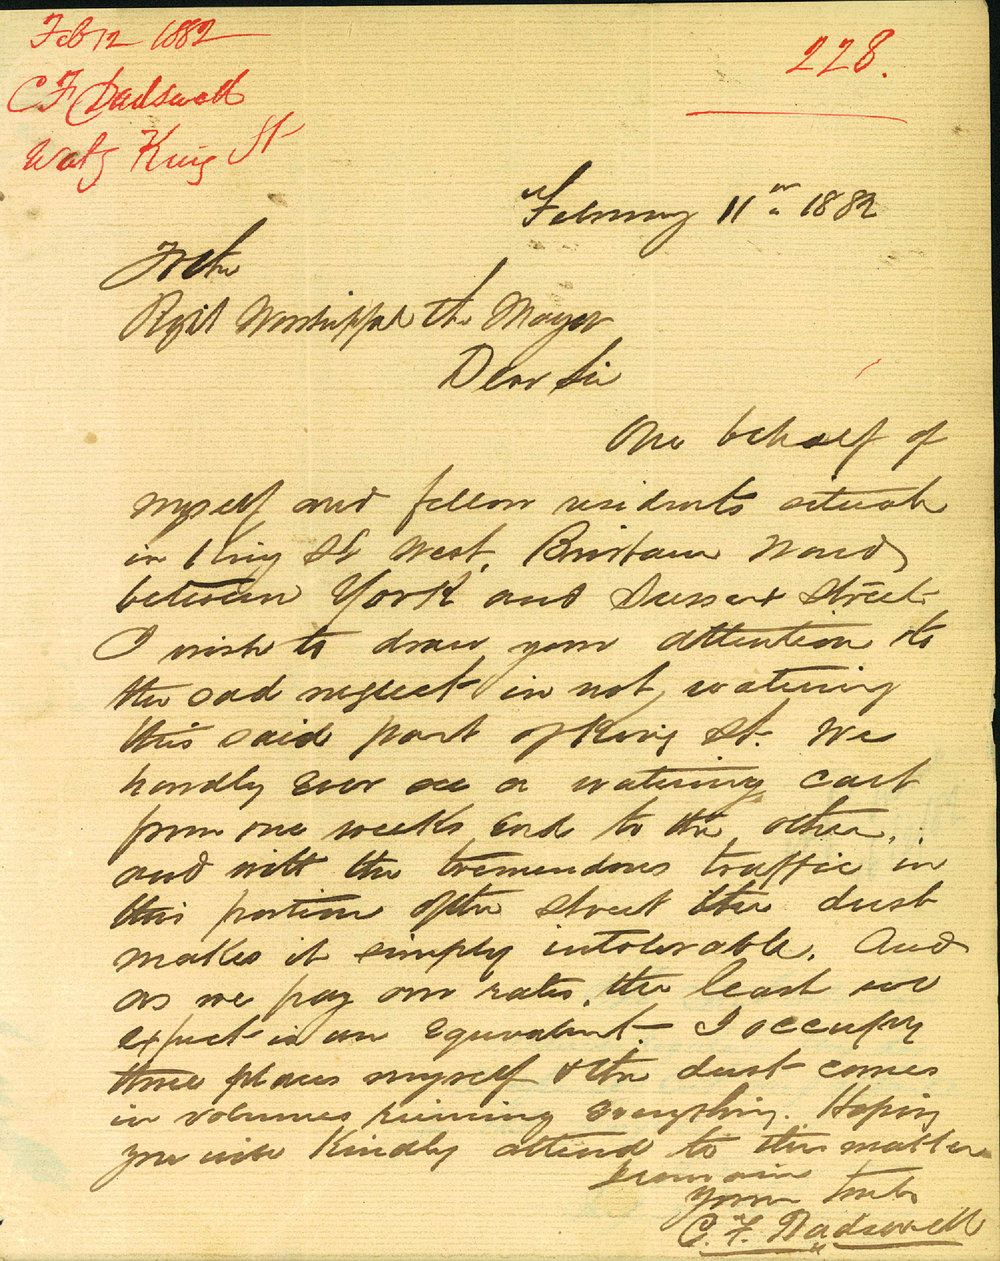 Feb 12 1882
C F Dadswell
Watg King St
228.
February 11th 1882
To the
Right Worshipful the Mayor
Dear Sir
One behalf of
myself and fellow residents situate
in King St West, Brisbane Ward,
between York and Sussex Street
I wish to draw your attention to
the sad neglect in not watering
this said part of King St. We
hardly ever see a watering cart
from one weeks End to the other,
and with the tremendous traffic in
this portion of the Street the dust
makes it simply intolerable. And
as we pay our rates, the least we
expect is an Equivalent. I occupy
three places myself & the dust comes
in volumes ruining everything. Hoping
you will Kindly attend to this matter
I remain
Yours truly
C. F. Dadswell